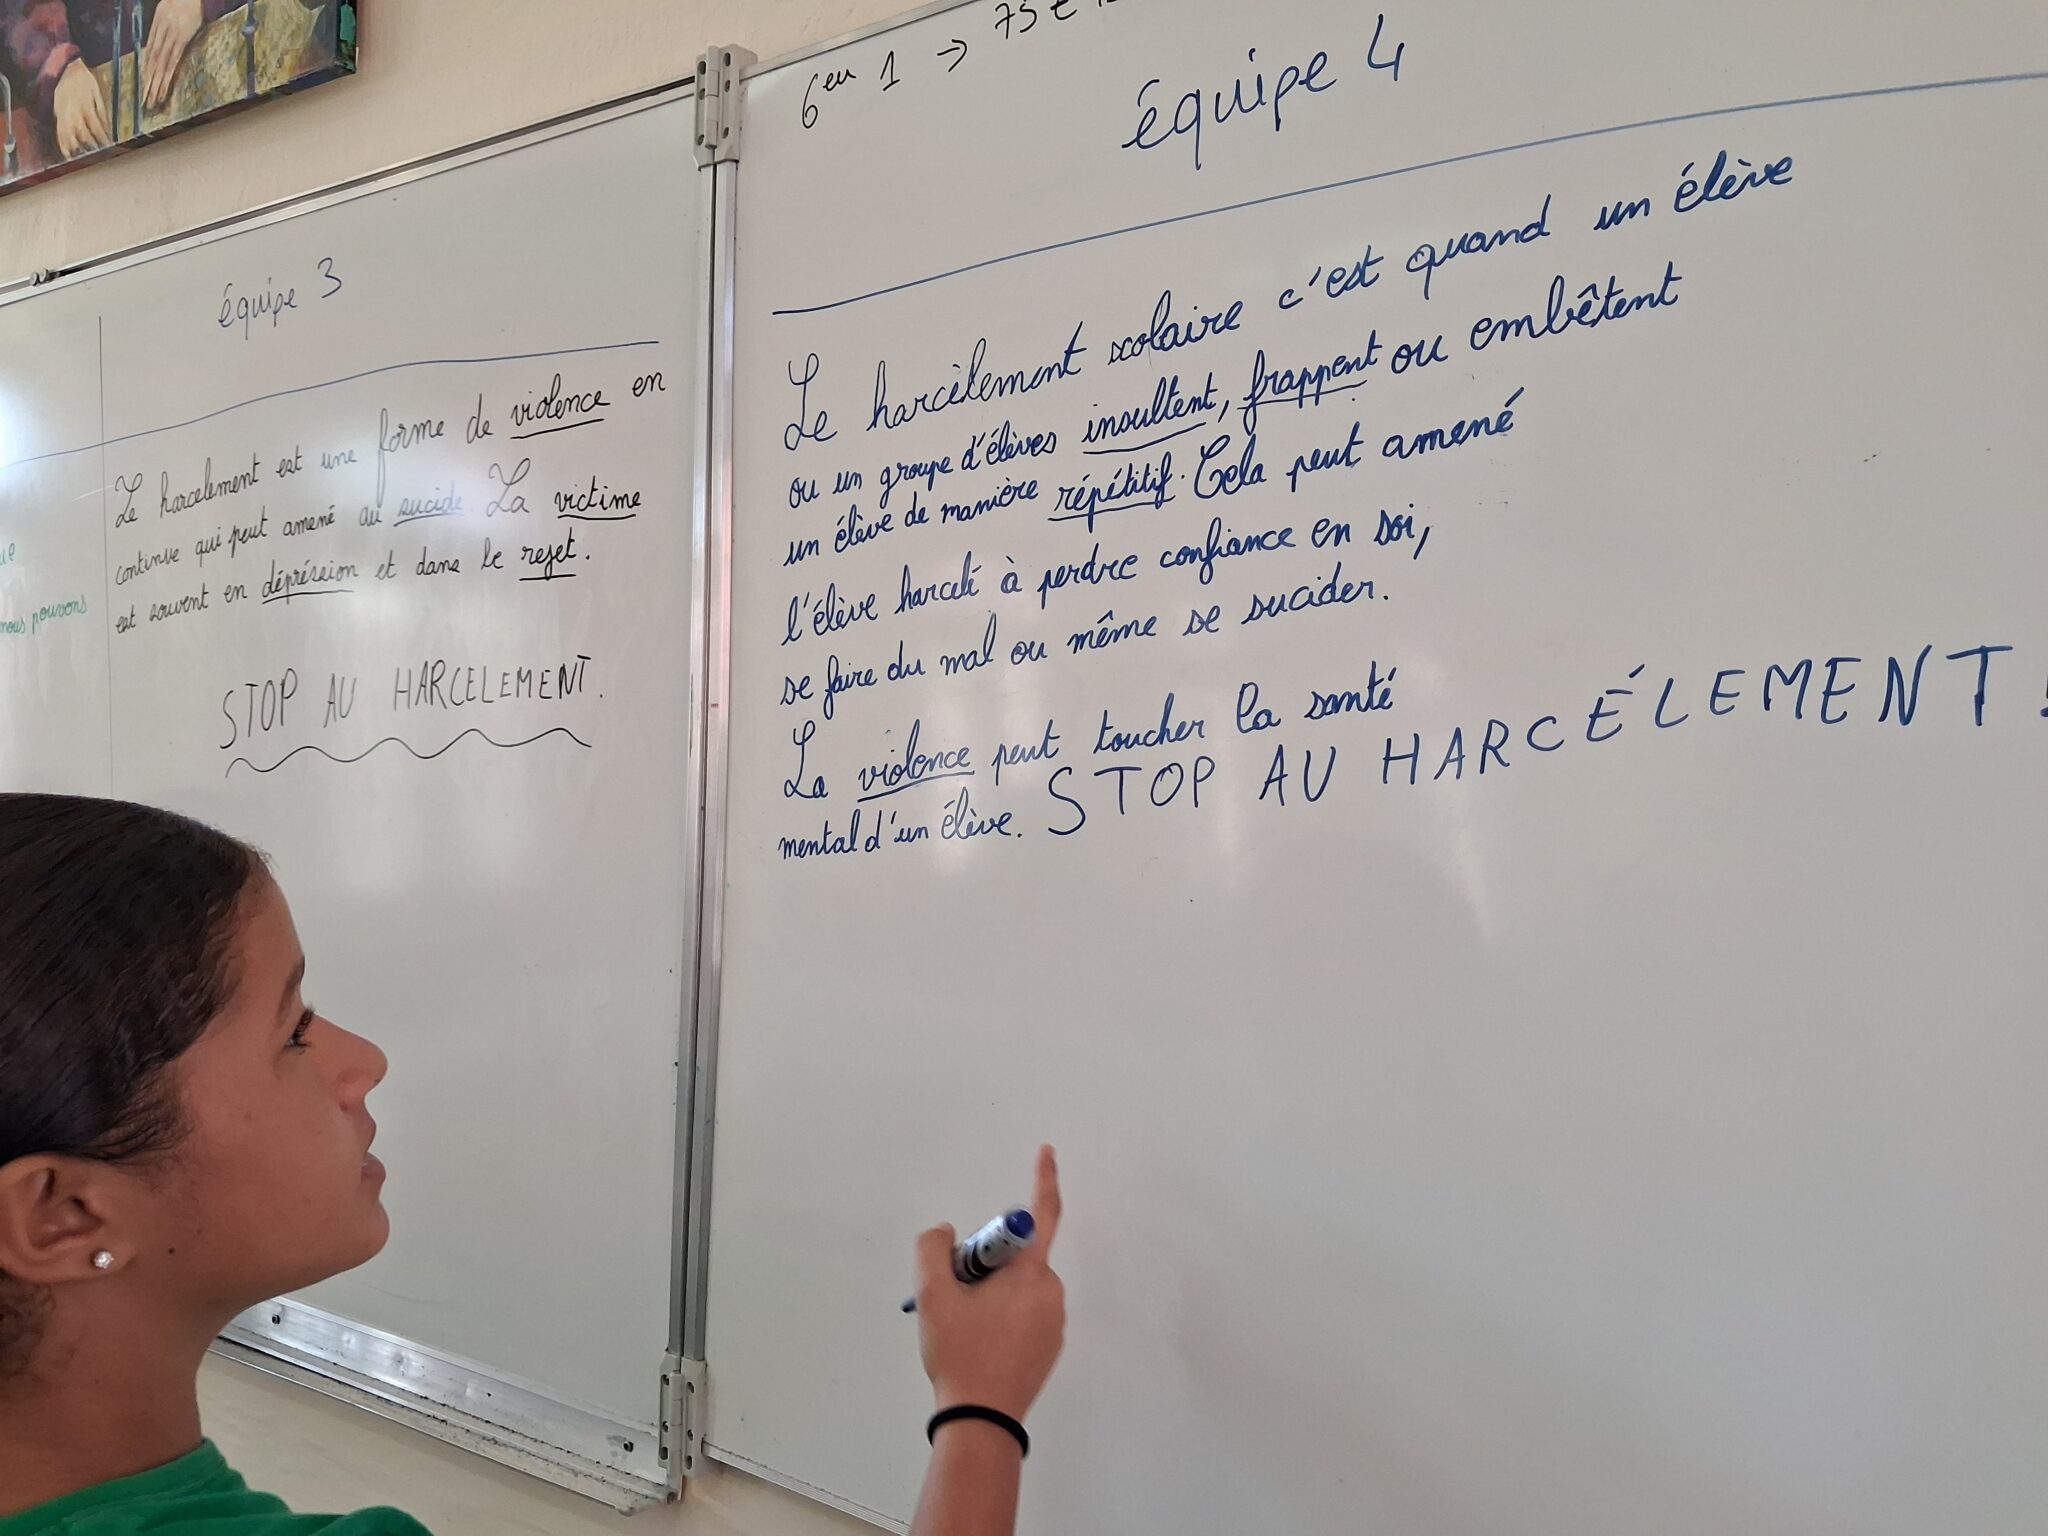 ue
nous pouvons
équipe 3
Le harcelement est une forme de violence en
continue qui peut amené au sucide. La victime
est souvent en dépréssion et dans le rejet.
STOP AU HARCELEMENT.
6eu 1 →
équipe 4
Le harcèlement scolaire c'est quand un élève
ou un groupe d'élèves insultent, frappent ou embêtent
un élève de manière répétitif. Cela peut amené
l'élève harcelé à perdre confiance en soi,
se faire du mal ou même se sucider.
La violence peut toucher la santé
mental d'un élève. STOP AU HARCÉLEMENT !